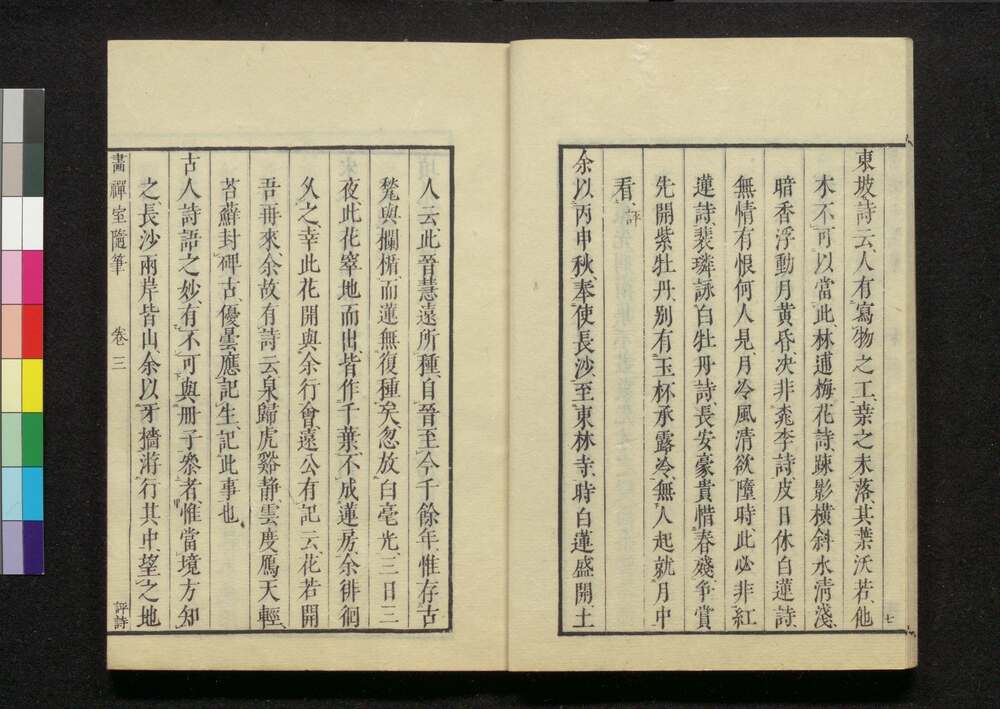 東坡詩云、人有寫物之工、桒之未落、其葉沃若、他
木不可以當此、林逋梅花詩、疎影橫斜水清淺、
暗香浮動月黃昏、决非桃李詩、皮日休白蓮詩、
無情有恨何人見、月冷風清欲墮時、此必非紅
蓮詩、裴璘詠白牡丹詩、長安豪貴惜春殘、爭賞
先開紫牡丹、别有玉杯承露冷、無人起就月中
看、評
余以丙申秋、奉使長沙、至東林寺、時白蓮盛開、土
七
人云、此晉慧遠所種、自晉至今千餘年、惟存古
甃與欄楯、而蓮無復種矣、忽放白毫光、三日三
夜、此花䆸地而出、皆作千葉、不成蓮房、余徘徊
久之、幸此花開與余行會、遠公有記云、花若開
吾再來、余故有詩云、泉歸虎谿靜、雲度鴈天輕、
苔蘚封碑古、優曇應記生、記此事也
古人詩語之妙、有不可與冊子參者、惟當境方知
之、長沙兩岸皆山、余以牙檣游行其中、望之地
畵禪室隨筆 卷三 評詩